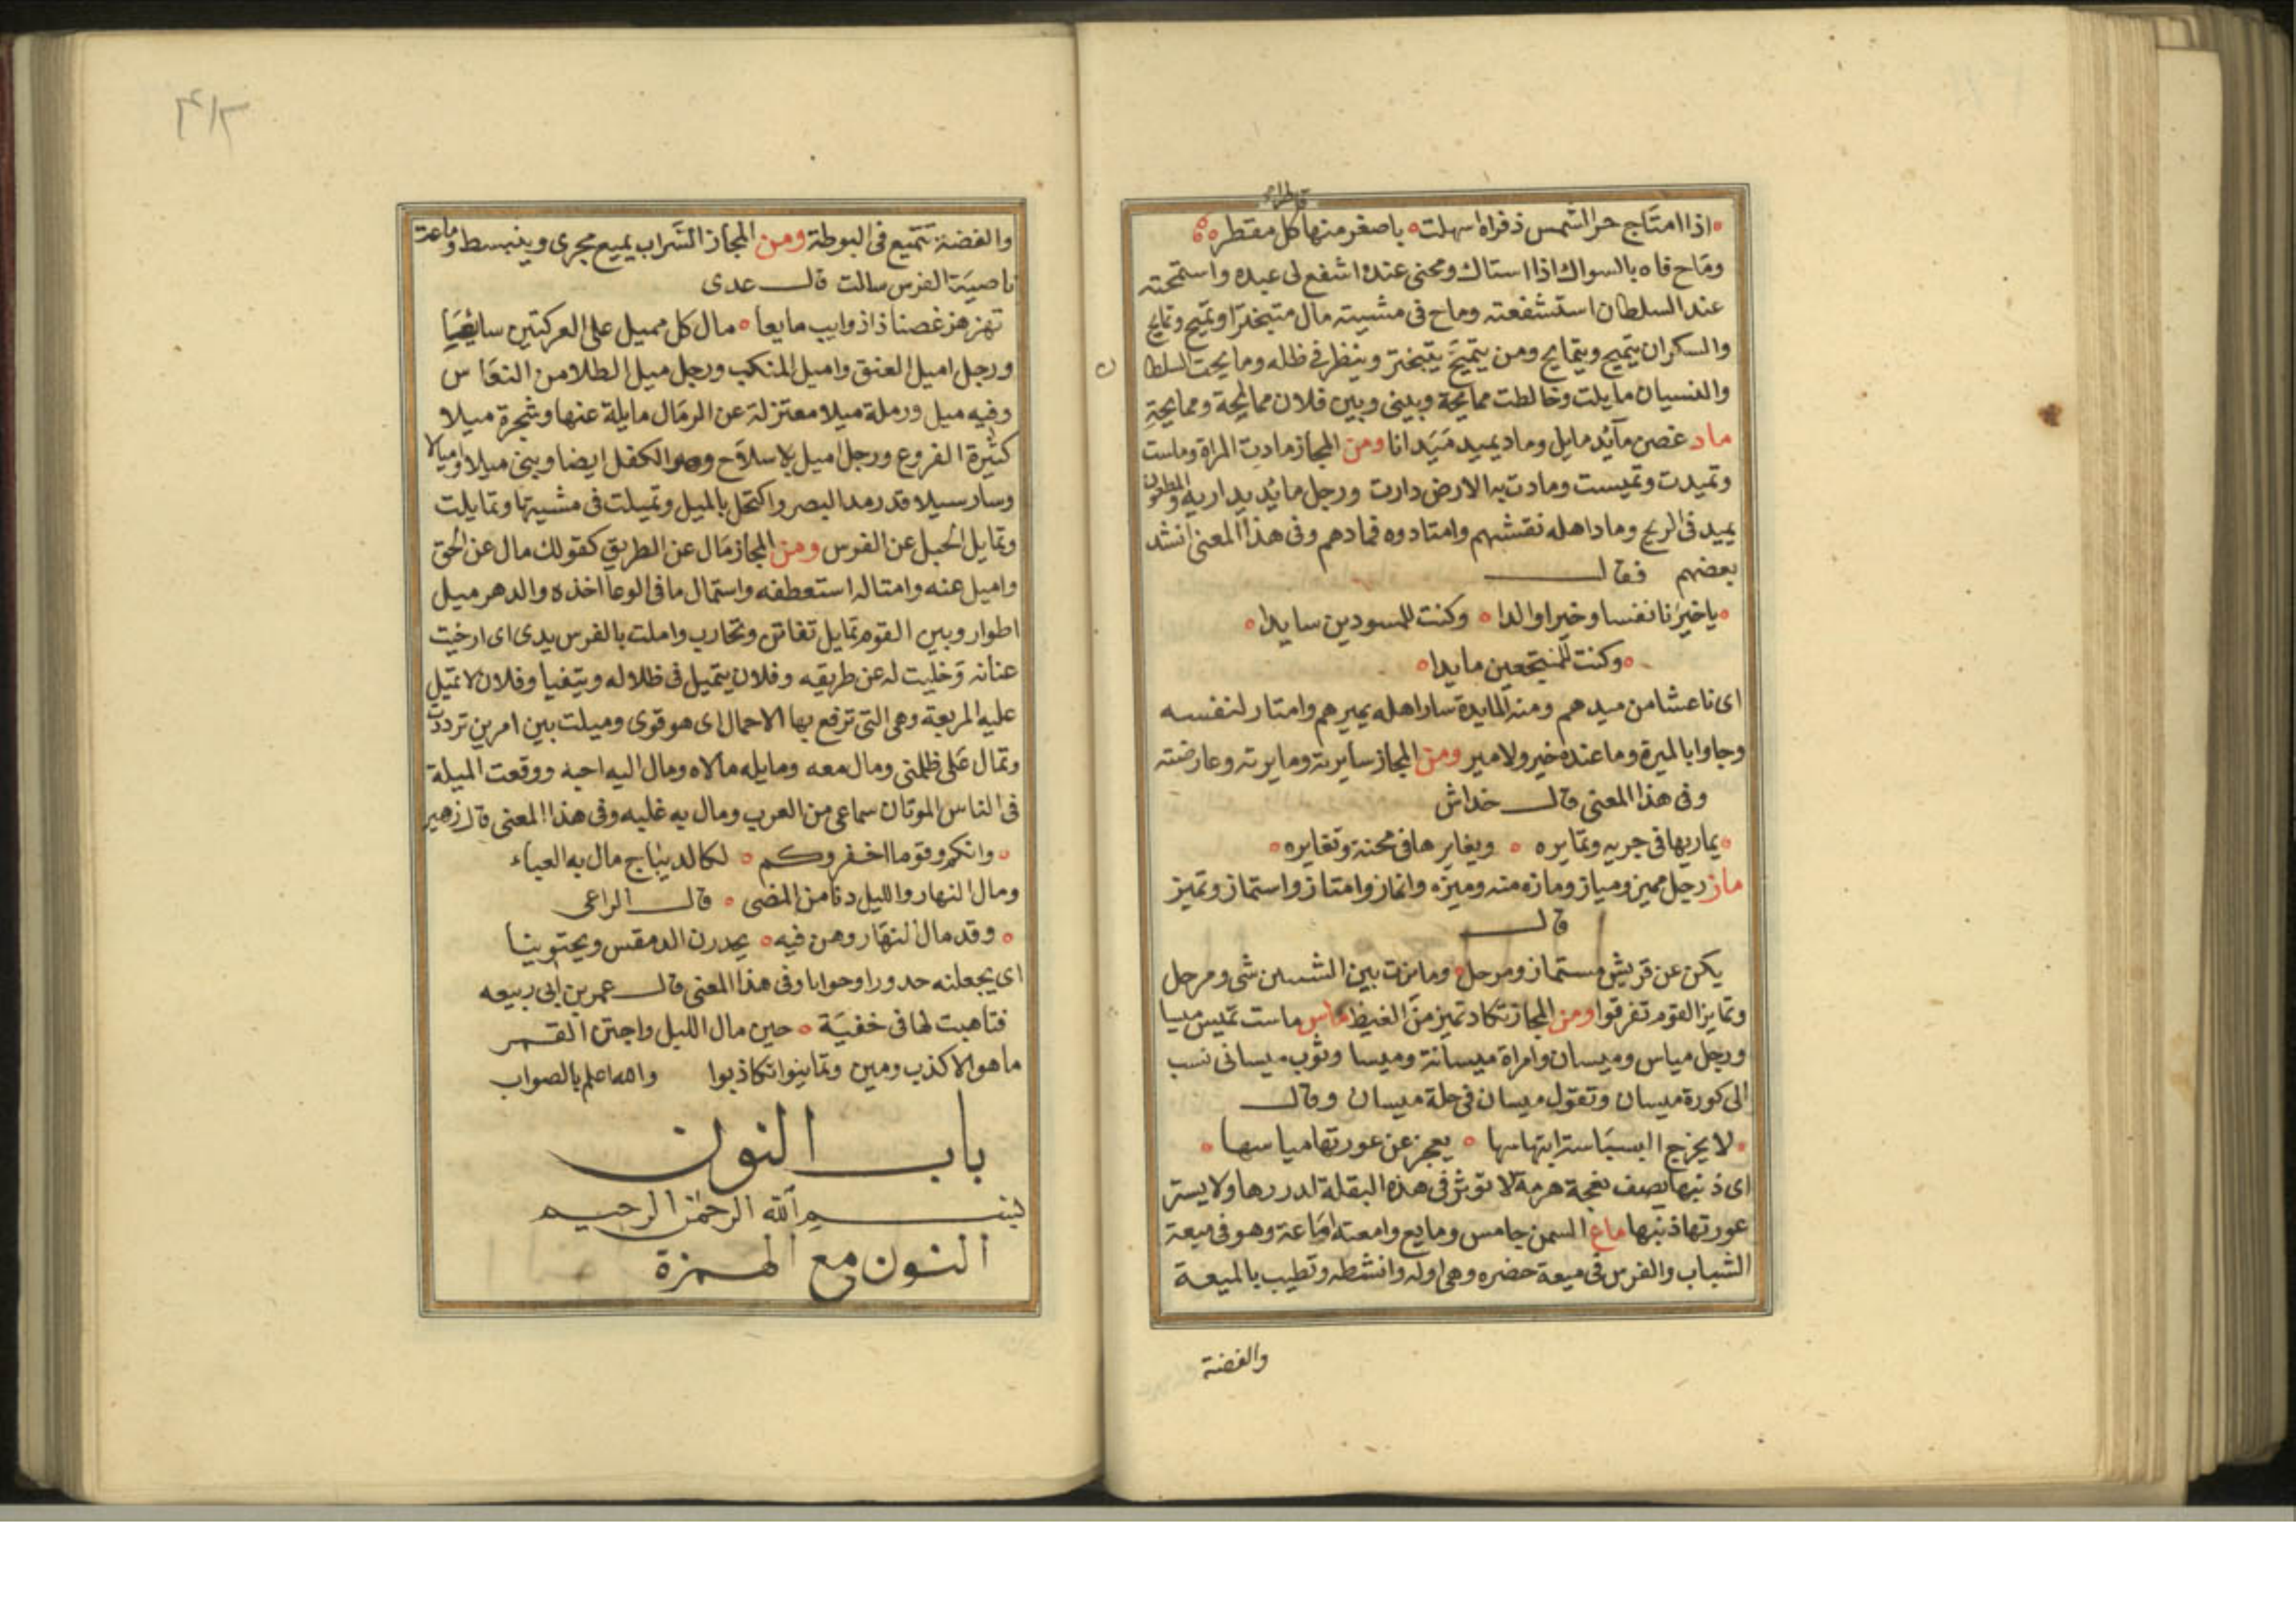 اذا امتاح حر الشمس ذفراه اسهلت باصغر منها كل مقطر
وماح فاه بالسواك اذا استاك ومحنى عنده اشفع لى عبده واستمحته
عند السلطان استشفعته وماح فى مشيته مال متبخترا وتميح وتمايح
والسكران يتميح ويتمايح ومن يتميح يتبختر وينظر فى ظله ومايحت السلطا
ن
والنسيان مايلت وخالطت ممايحة وبينى وبين فلان ممالحة وممايحة
ماد غصن مآئد مايل وماد يميد ميدانا ومن المجاز مادت المراة وماست
وتميدت وتميست ومادت به الارض دارت ورجل مائد يدار به والمطحون
يميد فى الريح وماد اهله نعشهم وامتادوه فمادهم وفى هذا المعنى انشد
بعضهم فقال
ياخيرنا نفسا وخيرا والدا وكنت للمسودين سايدا
وكنت للمنتجعين مايدا
اى ناعشا من ميدهم ومنه المايدة ساو اهله يميرهم وامتار لنفسه
وجاوا بالميرة وما عنده خير ولا مير ومن المجاز سايرته ومايرته وعارضته
وفى هذا المعنى قال خداش
يماريها فى جريه وتمايره ويغايرها فى محنة وتغايره
ماز رجل مميز ومياز ومازه منه وميزه وانماز وامتاز واستماز وتميز
قال
يكن عن قريش مستماز ومرحل ومايزت بين الشيين شى ومرحل
وتمايز القوم تفرقوا ومن المجاز تكاد تميز من الغيظ ماس ماست تميس ميسا
ورجل مياس وميسان وامراة ميسانة وميسا وثوب ميسانى نسب
الى كورة ميسان وتقول ميسان فى حلة ميسان وقال
لا يخرج البسباسة ابتهاسها يعجز عن عورتها مياسها
اى ذنبها يصف نعجة هرمة لا توثر فى هذه البقلة لدررها ولا يستر
عورتها ذنبها ماع السمن جامس ومايع وامعته اماعة وهو فى ميعة
الشباب والفرس فى ميعة حضره وهى اوله وانشطه وتطيب بالميعة
والفضة
٤١٣
والفضة تتميع فى البوطة ومن المجاز السراب يميع مجرى وينبسط وماعت
ناصية الفرس سالت قال عدى
تهزهز غصنا ذا ذوايب مايعا مال كل مميل على العركتين
ورجل اميل العنق واميل المنكب ورجل ميل الطلا من النعاس
وفيه ميل ورملة ميلا معتزلة عن الرمال مايلة عنها وشجرة ميلا
كثيرة الفروع ورجل اميل بلا سلاح وهو الكفل ايضا وبنى ميلا واميالا
وسار سيلا قدر مد البصر واكتحل بالميل وتميلت فى مشيتها وتمايلت
وتمايل الجبل عن الفرس ومن المجاز مال عن الطريق كقولك مال عن الحق
واميل عنه وامتاله استعطفه واستمال ما فى الوعا اخذه والدهر ميل
اطوار وبين القوم تمايل تفاتن وتحارب واملت بالفرس يدى اى ارخيت
عنانه وخليت له عن طريقه وفلان يتميل فى ظلاله ويتفيا وفلان لا تميل
عليه المربعة وهى التى ترفع بها الاحمال اى هو قوى وميلت بين امرين ترددت
وتمال على ظلمنى ومال معه ومايله مالاه ومال اليه احبه ووقعت الميلة
فى الناس الموتان سماعى من العرب ومال به غلبه وفى هذا المعنى قال زهير
وانكم وقوما اخفروكم لكالديباج مال به العباء
ومال النهار والليل دنا من المضى قال الراعى
وقد مال النهار وهن فيه يحدرن الدمقس ويحتوينا
اى يجعلنه حدورا وحوايا وفى هذا المعنى قال عمر بن ابى ربيعه
فتاهبت لها فى خفية حين مال الليل واجتن القمر
ما هو الا كذب ومين وتماينوا تكاذبوا والله اعلم بالصواب
باب النون
بسم الله الرحمن الرحيم
النون مع الهمزة